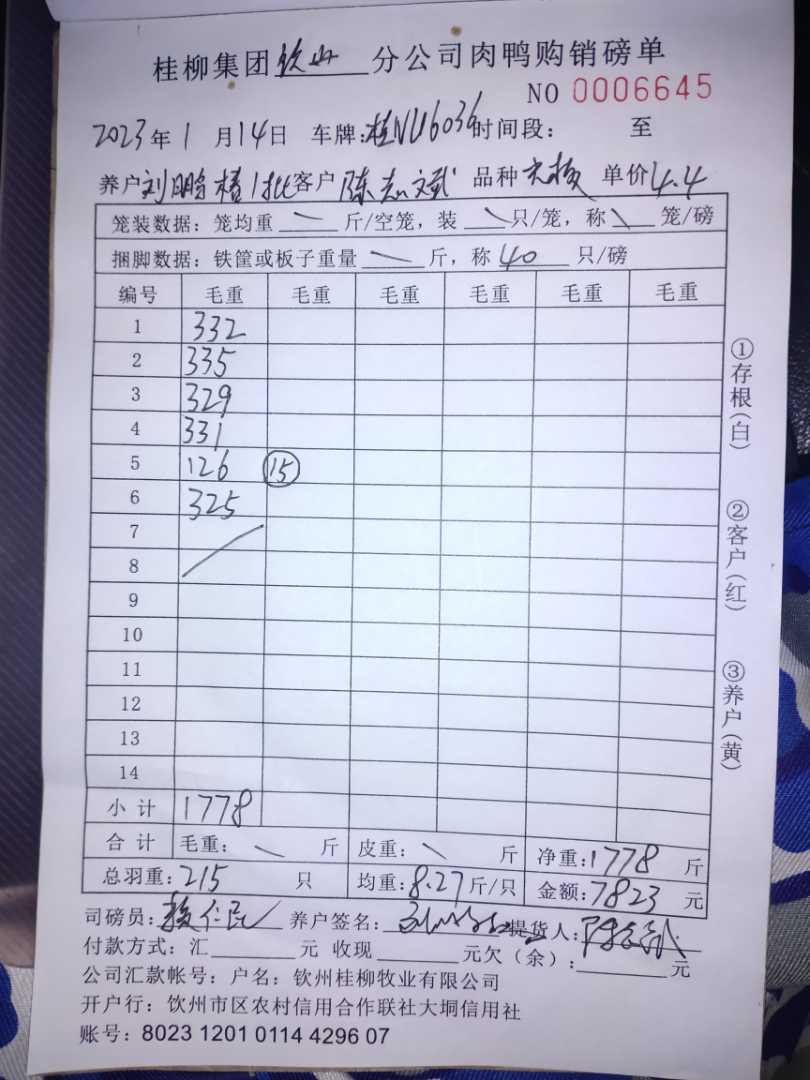 桂柳集团钦州分公司肉鸭购销磅单
NO 0006645
2023年1月14日 车牌:桂NU6036时间段: 至
养户刘明 1批客户陈志斌 品种 单价4.4
笼装数据: 笼均重 \ 斤/空笼, 装 \ 只/笼, 称 \ 笼/磅
捆脚数据: 铁筐或板子重量 \ 斤, 称 40 只/磅
编号 毛重 毛重 毛重 毛重 毛重 毛重
1 332
2 335
3 329
4 331
5 126 ⑮
6 325
7
8
9
10
11
12
13
14
小计 1778
合计 毛重: \ 斤 皮重: \ 斤 净重:1778 斤
总羽重:215 只 均重:8.27斤/只 金额:7823 元
司磅员: 仁民 养户签名: 提货人:
付款方式: 汇 元 收现 元欠(余): 元
公司汇款帐号: 户名: 钦州桂柳牧业有限公司
开户行: 钦州市区农村信用合作联社大垌信用社
账号: 8023 1201 0114 4296 07
①存根(白)
②客户(红)
③养户(黄)